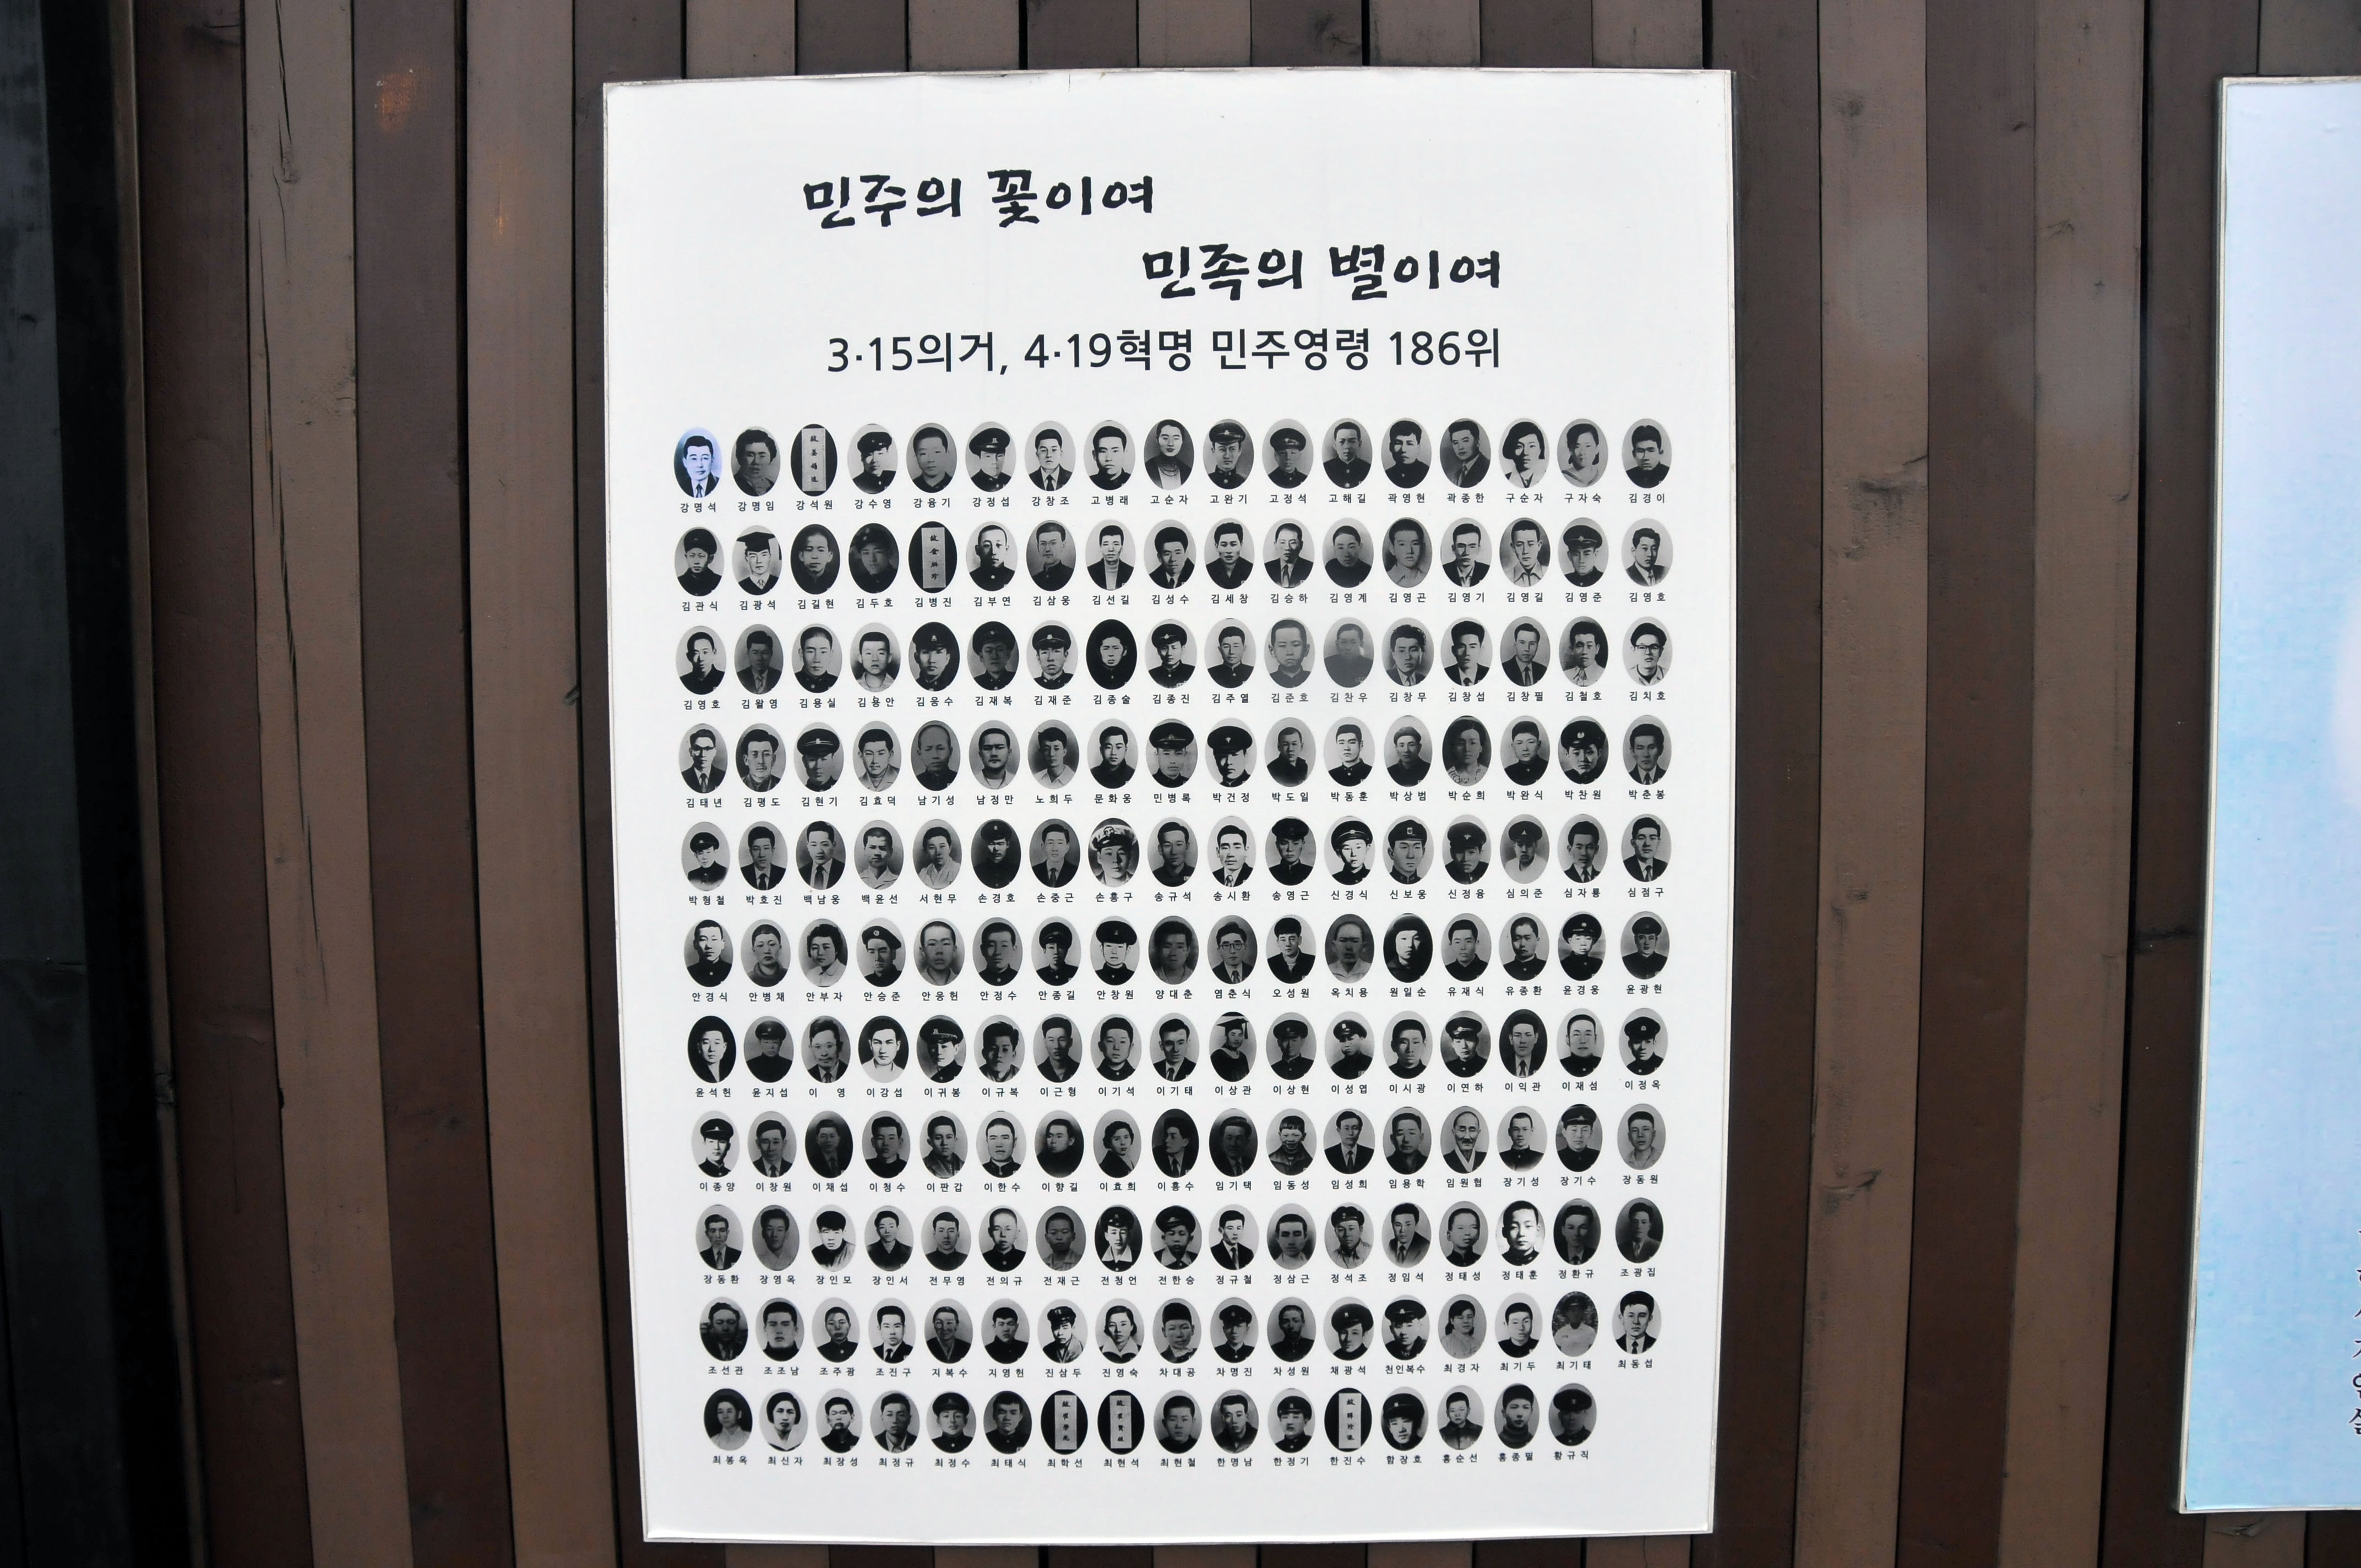 민주의 꽃이여
민족의 별이여
3·15의거, 4·19혁명 민주영령 186위
강명석 강명임 강석원 강수영 강융기 강정섭 강창조 고병래 고순자 고완기 고정석 고해길 곽영현 곽종한 구순자 구자숙 김경이
김관식 김광석 김길현 김두호 김병진 김부연 김삼웅 김선길 김성수 김세창 김승하 김영계 김영곤 김영기 김영길 김영준 김영호
김영호 김왈영 김용실 김용안 김웅수 김재복 김재준 김종술 김종진 김주열 김준호 김찬우 김창무 김창섭 김창필 김철호 김치호
김태년 김평도 김현기 김효덕 남기성 남정만 노희두 문화웅 민병록 박건정 박도일 박동훈 박상범 박순희 박완식 박찬원 박춘봉
박형철 박호진 백남웅 백윤선 서현무 손경호 손중근 손흥구 송규석 송시환 송영근 신경식 신보웅 신정융 심의준 심자룡 심점구
안경식 안병채 안부자 안승준 안응헌 안정수 안종길 안창원 양대춘 염춘식 오성원 옥치용 원일순 유재식 유종환 윤경웅 윤광현
윤석헌 윤지섭 이 영 이강섭 이귀봉 이규복 이근형 이기석 이기태 이상관 이상현 이성엽 이시광 이연하 이익관 이재섬 이정옥
이종양 이창원 이채섭 이청수 이판갑 이한수 이향길 이효희 이흥수 임기택 임동성 임성희 임용학 임원협 장기성 장기수 장동원
장동환 장영옥 장인모 장인서 전무영 전의규 전재근 전청언 전한승 정규철 정삼근 정석조 정임석 정태성 정태훈 정환규 조광집
조선관 조조남 조주광 조진구 지복수 지영헌 진삼두 진영숙 차대공 차명진 차성원 채광석 천인복수 최경자 최기두 최기태 최동섭
최봉옥 최신자 최장성 최정규 최정수 최태식 최학선 최현석 최현철 한명남 한정기 한진수 함장호 홍순선 홍종필 황규직